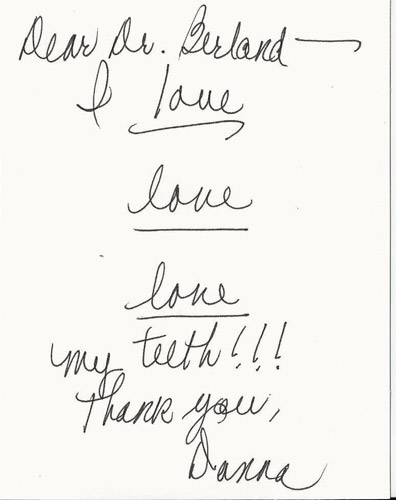 Dear Dr. Berland —
I love
love
love
my teeth!!!
Thank you,
Danna